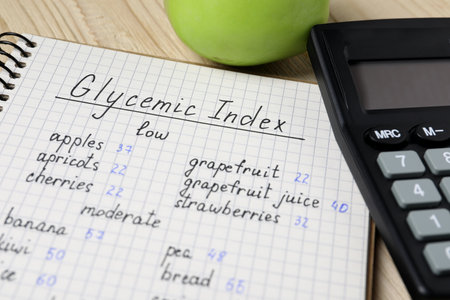 Glycemic Index
low
apples 37
apricots 22
cherries 22
grapefruit 22
grapefruit juice 40
strawberries 32
moderate
banana 57
kiwi 50
60
pea 48
bread 65
MRC
M-
7
8
4
5
1
2